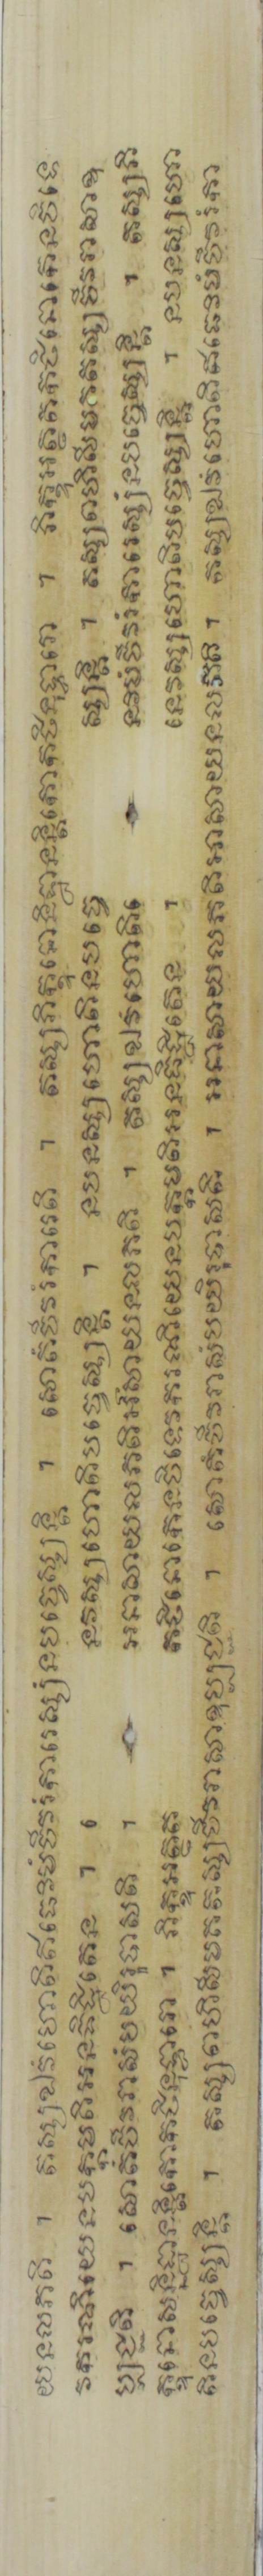 យ នលភតិ ។ តស្សឯវំហោតិឥធេវមំចីវរំការេស្សំនបច្ចេស្សន្តិ ។ សោតំចីវរំការេតិ ។ តស្សភិក្ខុនោនិដ្ឋានន្តិកោកថិនុទ្ធារោ ។ ភិក្ខុអត្ថតកថិនោកេនចិទេ
វករណីយេនបក្កមតិអនធិដ្ឋិតេន ។ េ នវស្សហោតិបច្ចេស្សន្តិ ។ នបនស្សហោតិនបច្ចេ ស្សន្តិ ។ តស្សពហិសីមគតស្សចីវរាសាឧ
ប្បជ្ជតិ ។ សោតំចីវរាសំបយិរុបាសតិ ។ អនាសាយលភតិអាសាយនលភតិ ។ តស្សឯវំហោតិឥធេ វមំចីវរំការេស្សំនបច្ចេស្សន្តិ ។ តស្សភិ
ក្ខុនោសន្និដ្ឋានន្តិកោកថិនុទ្ធារោ ។ ភិក្ខុអត្ថត កថិនោកេនចិទេវករណីយេនបក្កមតិអនធិដ្ឋិតេន ។ នេវស្សហោតិបច្ចេស្សន្តិ ។ នបនស្សហោ
តិនបច្ចេស្សន្តិ ។ តស្សពហិសីមគតស្សចីវរាសាឧប្បជ្ជតិ ។ សោតំចីវរាសំបយិរុបាសតិ ។ អនាសាយលភតិអាសាយនលភតិ ។ តស្សឯវំហោតិឥធេវមំចីវរំកា